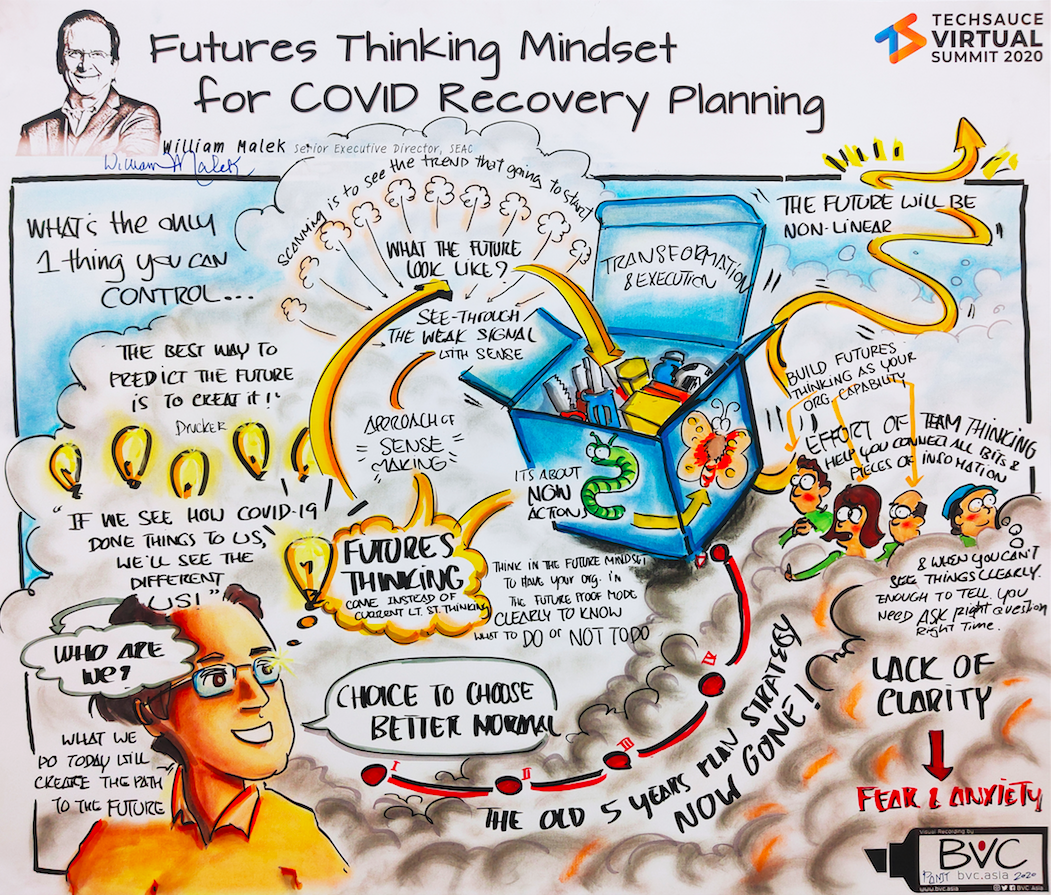 Futures Thinking Mindset
for COVID Recovery Planning
TECHSAUCE
VIRTUAL
SUMMIT 2020
William Malek Senior Executive Director, SEAC
William A Malek
WHAT's the only
1 thing you can
CONTROL...
THE BEST WAY TO
PREDICT THE FUTURE
IS TO CREAT IT!"
Drucker
"IF WE SEE HOW COVID-19
DONE THINGS TO US,
WE'LL SEE THE
DIFFERENT
US!"
WHO ARE
WE?
WHAT WE
DO TODAY WILL
CREATE THE PATH
TO THE FUTURE
SCANNING is to see the TREND that going to start!
WHAT THE FUTURE
LOOK LIKE?
SEE-THROUGH
THE WEAK SIGNAL
WITH SENSE
APPROACH OF
SENSE
MAKING
FUTURES
THINKING
COME INSTEAD OF
CURRENT LT. ST. THINKING
IT'S ABOUT
NOW
ACTION
TRANSFORMATION
& EXECUTION
THINK IN THE FUTURE MINDSET
TO HAVE YOUR ORG. in
THE FUTURE PROOF MODE
CLEARLY TO KNOW
WHAT TO DO or NOT TO DO
CHOICE TO CHOOSE
BETTER NORMAL
I
II
III
IV
V
THE OLD 5 YEARS PLAN STRATEGY
NOW GONE!
THE FUTURE WILL BE
NON-LINEAR
BUILD FUTURES
THINKING AS YOUR
ORG. CAPABILITY
EFFORT OF TEAM THINKING
HELP YOU CONNECT ALL BITS &
PIECES OF INFOMATION
& WHEN YOU CAN'T
SEE THINGS CLEARLY.
ENOUGH TO TELL. YOU
NEED ASK Right QUESTION
Right TIME.
LACK OF
CLARITY
FEAR & ANXIETY
Visual Recording by
BVC
bvc.asia 2020
www.bvc.asia
BVC Asia